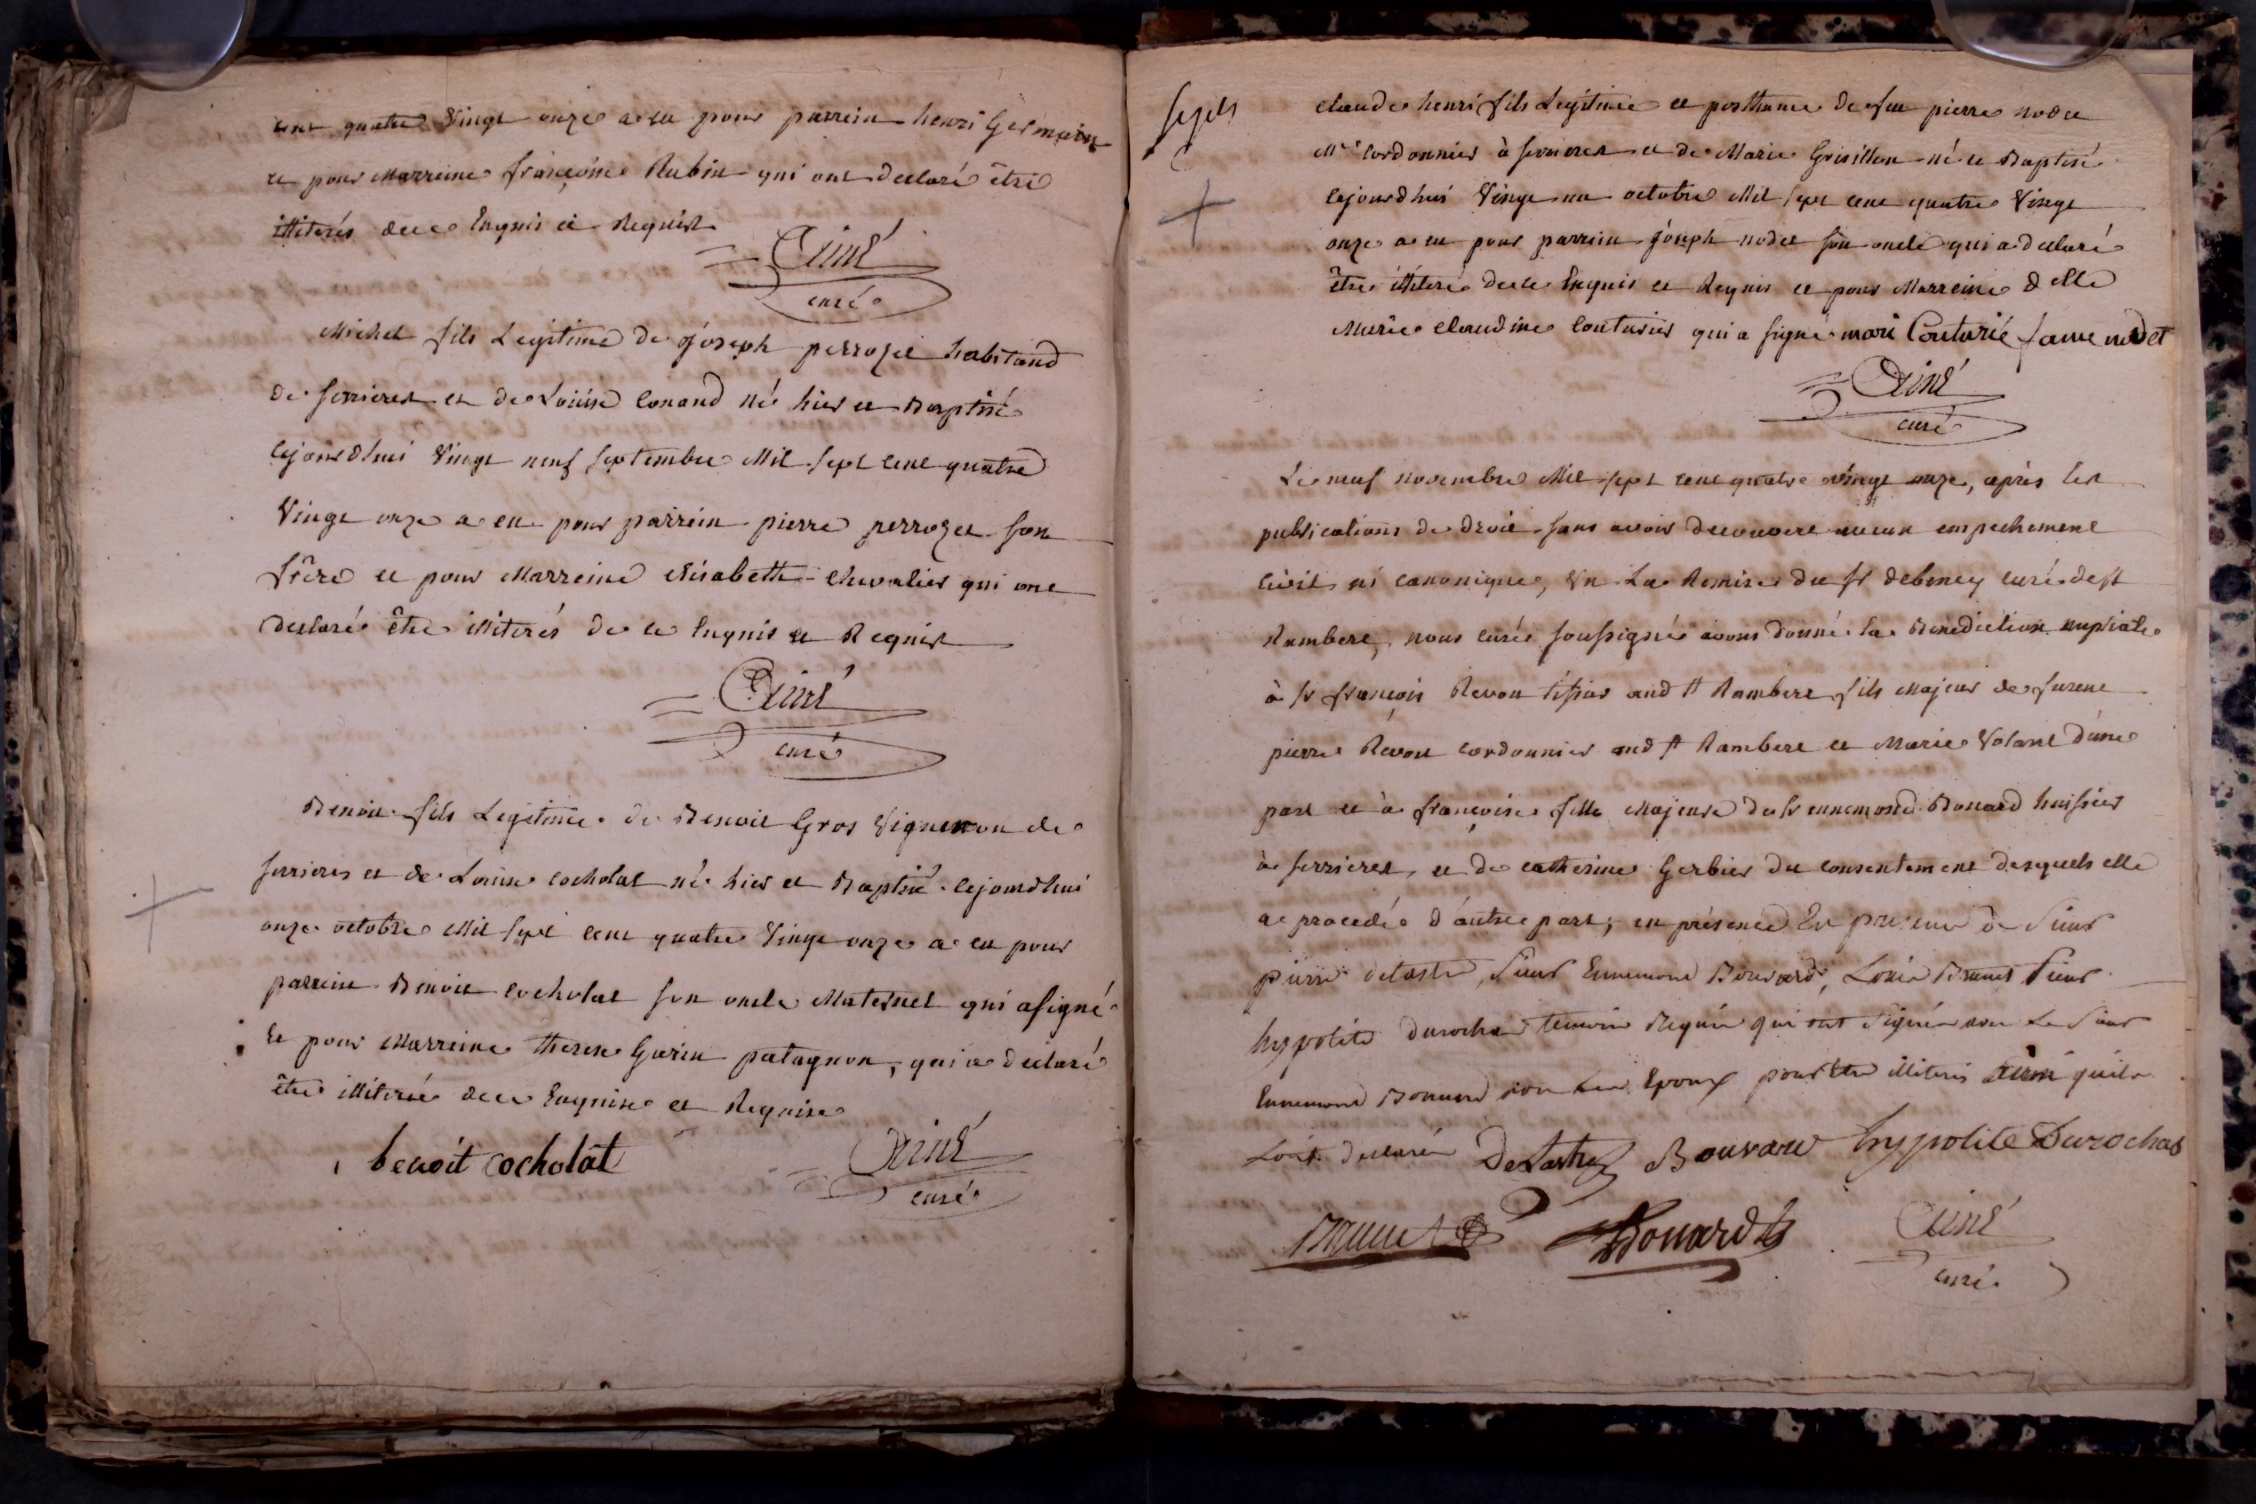 cent quatre Vingt onze a eu pour parrein henri Germain
et pour Marreine françoise Rubin qui ont declaré être
illiterés de ce Enquis et Requist
Ainé
curé
Michel fils Legitime de joseph perrozet habitand
de serrieres et de Loüise Conand né hier et Baptisé
cejourdhui Vingt neuf septembre Mil sept cent quatre
Vingt onze a eu pour parrein pierre perrozet son
frêre et pour Marreine elisabeth chevalier qui ont
declaré être illiterés de ce Enquis et Requist
Ainé
curé
Benoit fils Legitime de Benoit Gros Vigneron de
serrieres et de Louise cocholat né hier et Baptisé cejourdhui
onze octobre Mil sept cent quatre Vingt onze a eu pour
parrein Benoit cocholat son oncle Maternel qui a signé
Et pour Marreine therese Garin patagnon, qui a declaré
être illiterée de ce Enquise et Requise
benoit cocholat
Ainé
curé
claude henri fils Legitime et posthume de feu pierre nodet
Mre cordonnier à serrieres et de Marie Grisillon né et Baptisé
cejourdhui Vingt un octobre Mil sept cent quatre Vingt
onze a eu pour parrein joseph nodet son oncle qui a declaré
être illiteré de ce Enquis et Requis et pour Marreine delle
Marie claudine Couturier qui a signé mari Couturié fame nodet
Ainé
curé
Le neuf novembre Mil sept cent quatre vingt onze, après les
publications de droit sans avoir decouvert aucun empechement
civil ni canonique, Vu La Remise du sr debeney curé de st
Rambert, nous curé soussigné avons donné la Benediction nuptiale
à sr françois Revon tissier aud st Rambert fils Majeur de furent
pierre Revon cordonnier aud st Rambert et Marie Volant d'une
part et à françoise fille Majeure du sr ennemond Bonard huissier
à serrieres, et de catherine Gerbier du consentement desquels elle
a procedé d'autre part, en présence En presence de Sieur
pierre delastre, Sieur Ennemond Bouvard, Louis Brunet Sieur
hypolite Durochas temoin Requis qui ont Signés avec Le Sieur
Ennemond Bonard non Les Epoux pour être illiterés ainsi quils
L'ont declarés DeLastre Bouvard hypolite Durochas
Brunet
Bonard
Ainé
curé